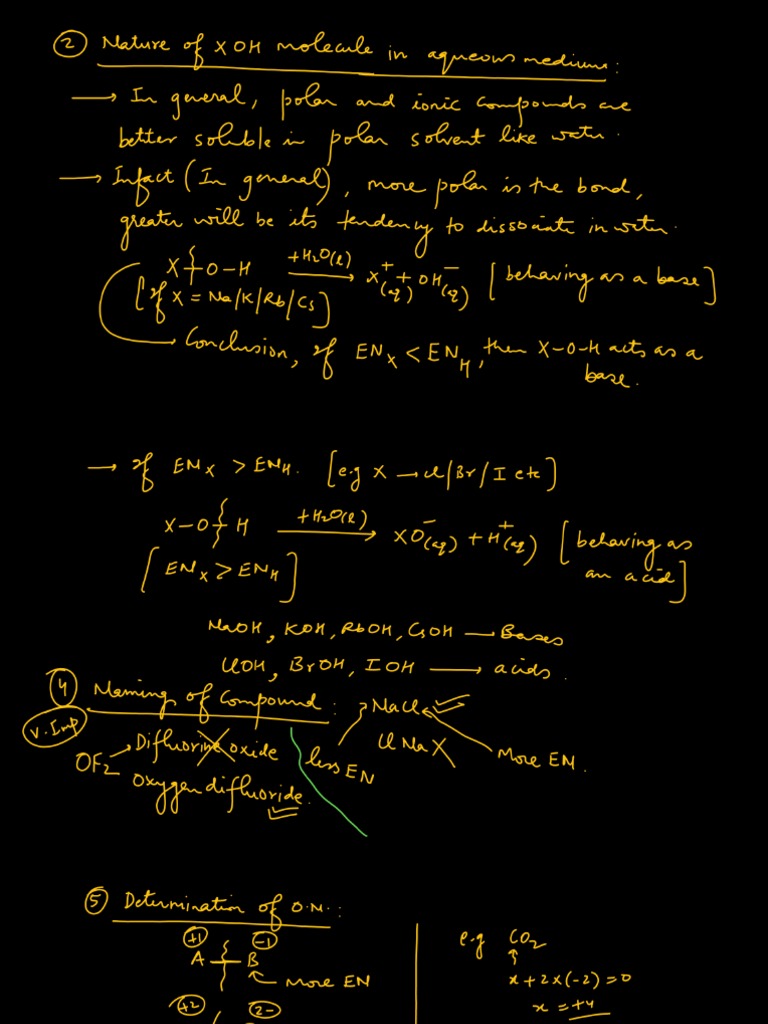 ② Nature of XOH molecule in aqueous medium:
→ In general, polar and ionic compounds are
better soluble in polar solvent like water.
→ Infact (In general), more polar is the bond,
greater will be its tendency to dissociate in water.
X-O-H +H2O(l) → X+(aq) + OH-(aq) [behaving as a base]
[if X = Na/K/Rb/Cs]
Conclusion, if ENX < ENH, then X-O-H acts as a
base.
→ if ENX > ENH. [e.g X → Cl/Br/I etc]
X-O-H +H2O(l) → XO-(aq) + H+(aq) [behaving as
an acid]
[ENX > ENH]
NaOH, KOH, RbOH, CsOH — Bases
ClOH, BrOH, IOH → acids.
④ Naming of Compound:
v.Imp
NaCl
ClNa X
less EN
More EN.
OF2 → Difluorine oxide
Oxygen difluoride.
⑤ Determination of O.N.:
+1 -1
A — B
More EN
+2 2-
e.g CO2
x+2x(-2)=0
x = +4